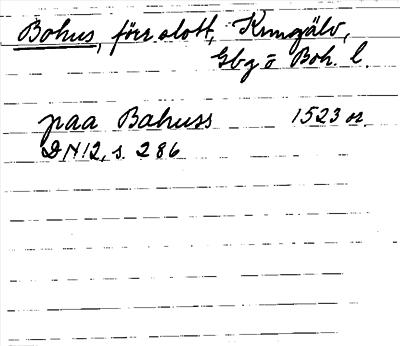 Bohus, förr slott, Kungälv,
Gbg o Boh. l.
paa Bahuss 1523 or.
DN 12, s. 286